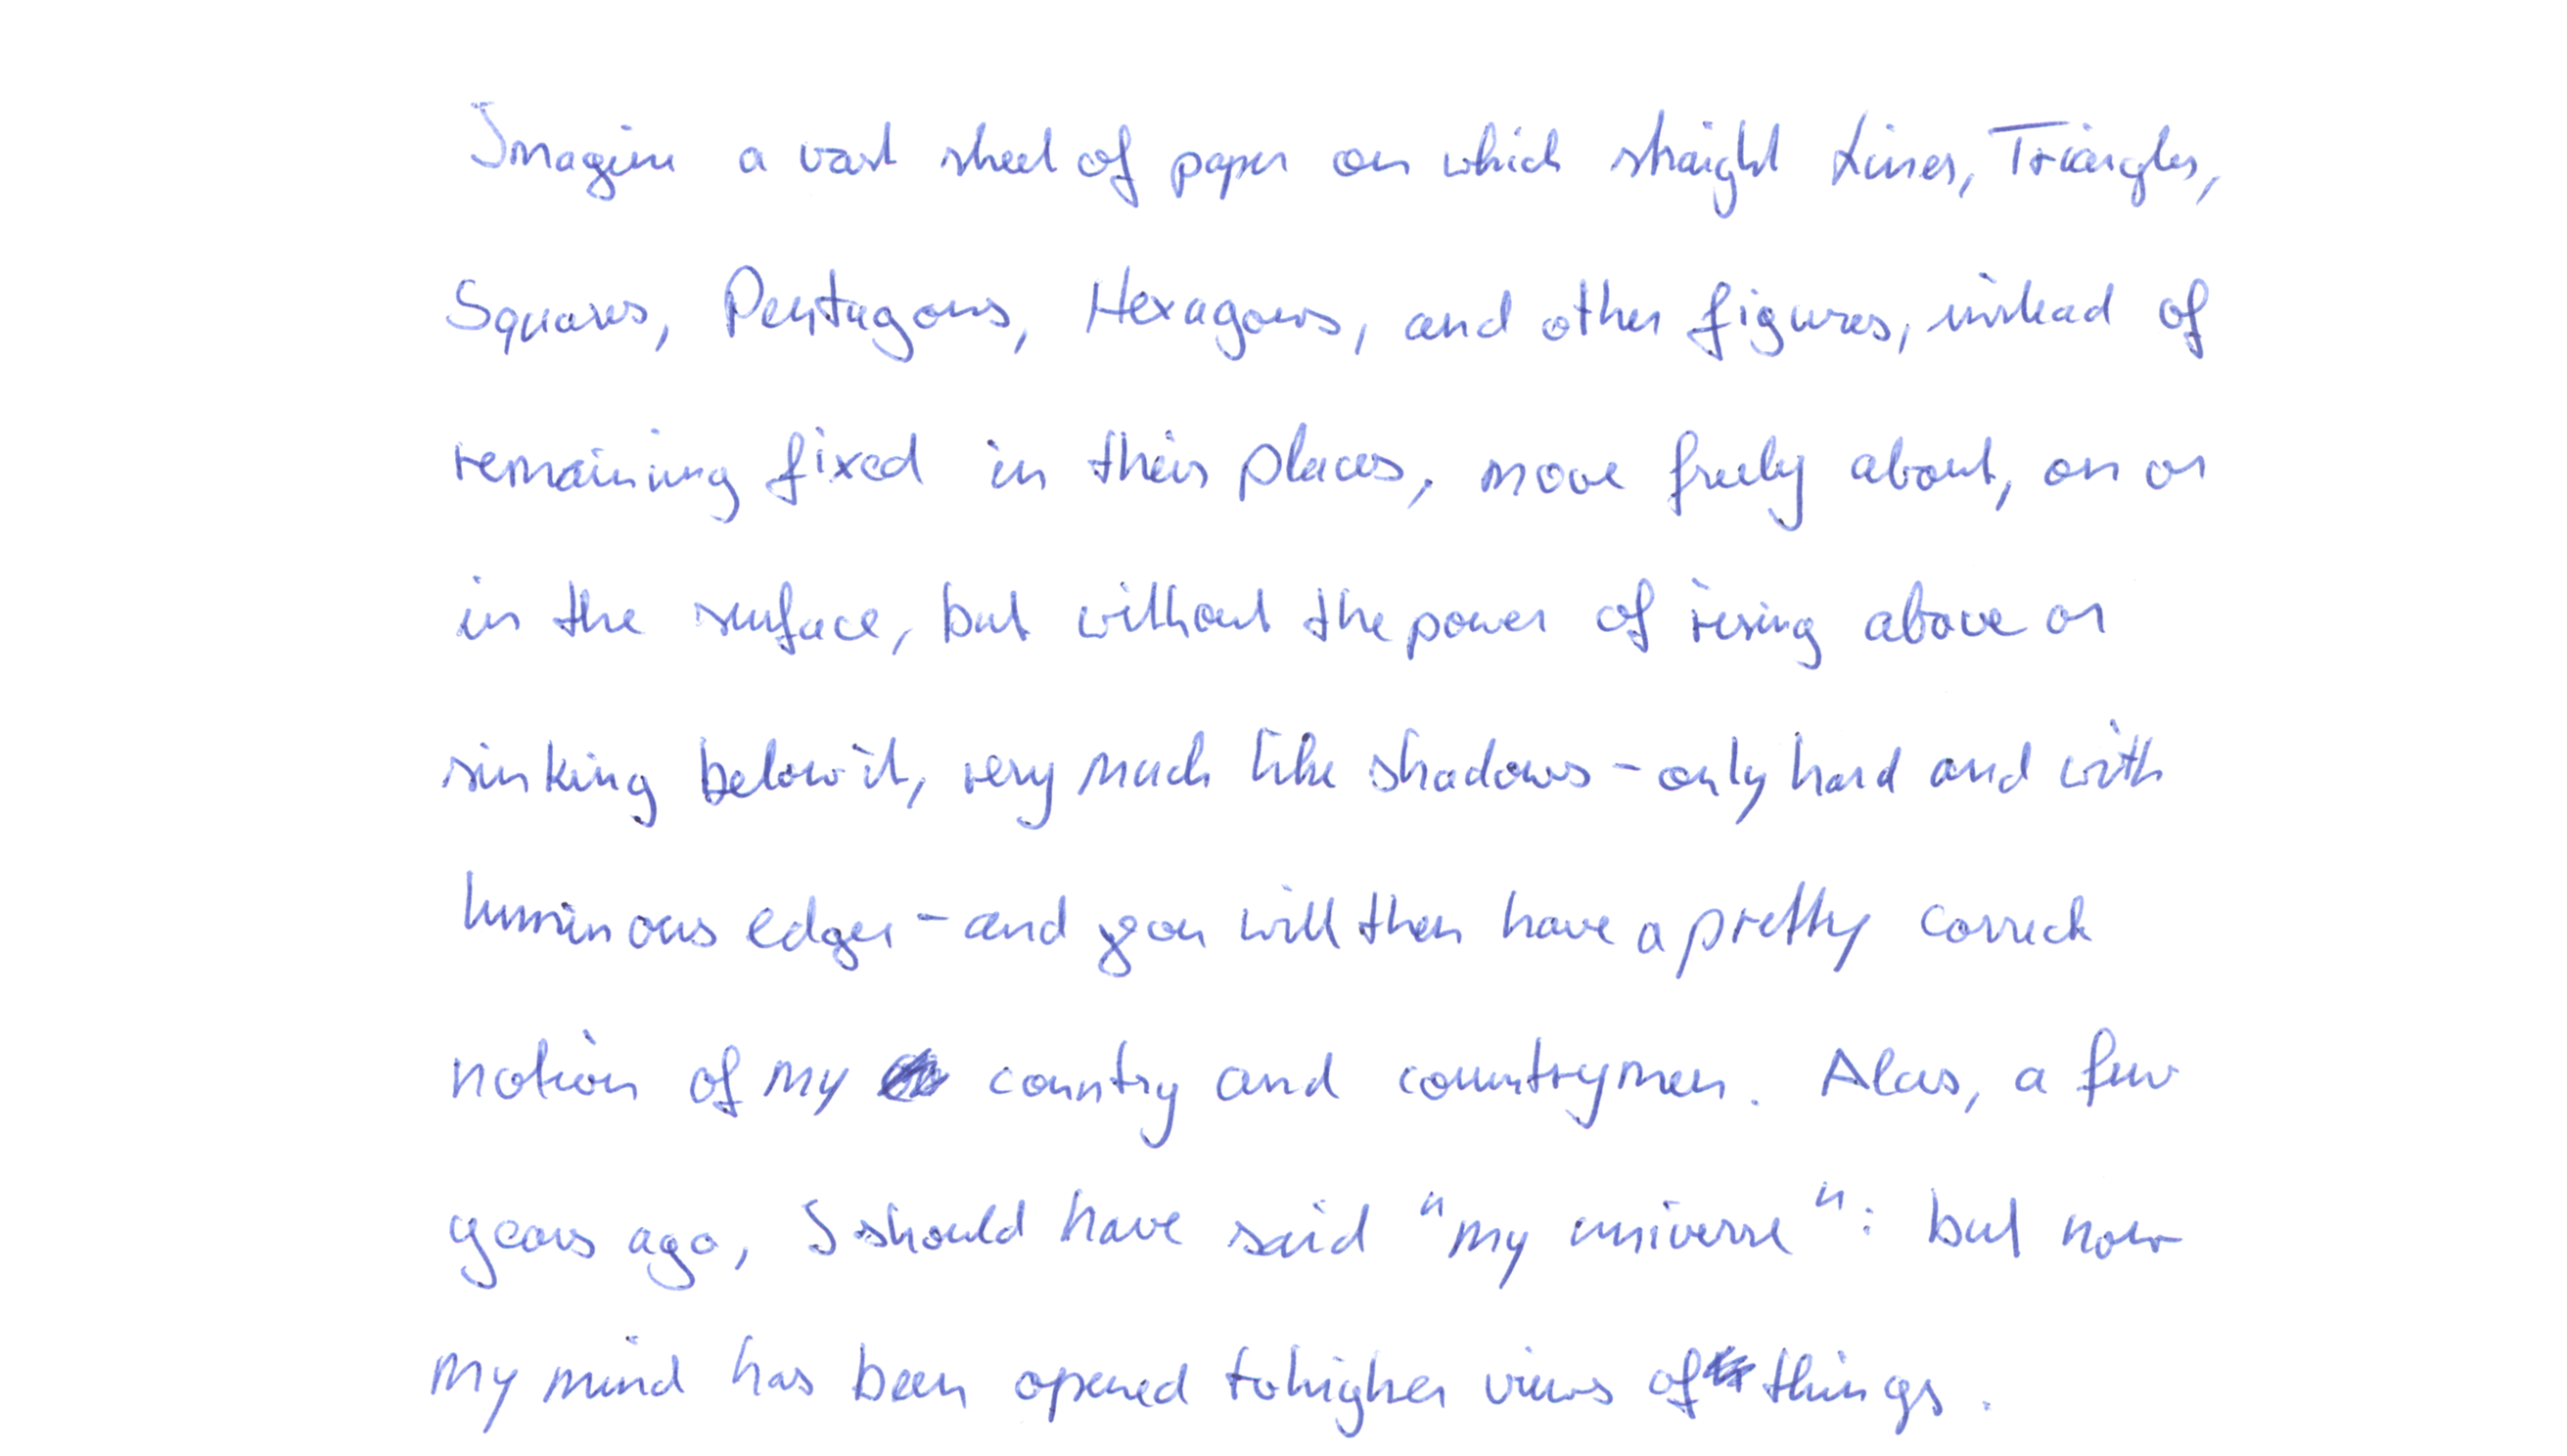 Imagine a vast sheet of paper on which straight Lines, Triangles,
Squares, Pentagons, Hexagons, and other figures, instead of
remaining fixed in their places, move freely about, on or
in the surface, but without the power of rising above or
sinking below it, very much like shadows - only hard and with
luminous edges - and you will then have a pretty correct
notion of my country and countrymen. Alas, a few
years ago, I should have said "my universe": but now
my mind has been opened to higher views of things.